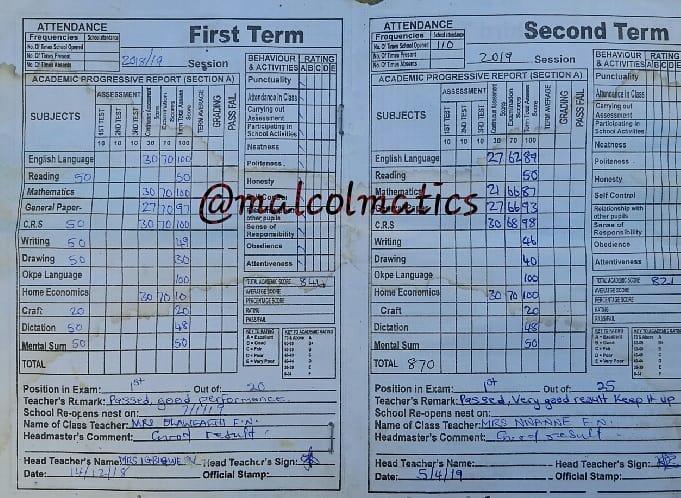 ATTENDANCE
First Term
Frequencies School attendance
No. Of Times School Opened
No. Of Times Present
No. Of Times Absents
2018/19 Session
BEHAVIOUR & ACTIVITIES RATING
A B C D E
ACADEMIC PROGRESSIVE REPORT (SECTION A)
SUBJECTS
ASSESSMENT
1ST TEST 2ND TEST 3RD TEST Continuous Assessment Score Examination Scores Term Total Assess Score TERM AVERAGE GRADING PASS FAIL
10 10 10 30 70 100
Punctuality
Attendance in Class
Carrying out Assessment
Participating in School Activities
Neatness
Politeness
Honesty
Sense of Responsibility
Obedience
Attentiveness
English Language 30 70 100
Reading 50 50
Mathematics 30 70 100
General Paper 27 70 97
C.R.S 50 30 70 100
Writing 50 49
Drawing 50 30
Okpe Language 100
Home Economics 30 70
Craft 20 20
Dictation 50 48
Mental Sum 50 50
TOTAL
TOTAL ACADEMIC SCORE
AVERAGE SCORE
PERCENTAGE SCORE
RATING
PASS/FAIL
KEY TO RATING
A = Excellent
B = Good
C = Fair
D = Poor
E = Very Poor
KEY TO ACADEMIC RATING
Position in Exam: 1st Out of: 20
Teacher's Remark: Passed, good performance.
School Re-opens nest on: 7/1/19
Name of Class Teacher: MRS F.N.
Headmaster's Comment: Good result.
Head Teacher's Name: MRS Head Teacher's Sign:
Date: 14/12/18 Official Stamp:
ATTENDANCE
Second Term
Frequencies School attendance
No. Of Times School Opened 110
No. Of Times Present
No. Of Times Absents
2019 Session
BEHAVIOUR & ACTIVITIES RATING
A B C D E
ACADEMIC PROGRESSIVE REPORT (SECTION A)
SUBJECTS
ASSESSMENT
1ST TEST 2ND TEST 3RD TEST Continuous Assessment Score Examination Scores Term Total Assess Score TERM AVERAGE GRADING PASS FAIL
10 10 10 30 70 100
Punctuality
Attendance in Class
Carrying out Assessment
Participating in School Activities
Neatness
Politeness
Honesty
Self Control
Relationship with other pupils
Sense of Responsibility
Obedience
Attentiveness
English Language 27 62 89
Reading 50
Mathematics 21 66 87
27 66 93
C.R.S 30 68 98
Writing 46
Drawing 40
Okpe Language 100
Home Economics 30 70 100
Craft 20
Dictation 48
Mental Sum 50
TOTAL 870
TOTAL ACADEMIC SCORE 821
AVERAGE SCORE
PERCENTAGE SCORE
RATING
PASS/FAIL
KEY TO RATING
A = Excellent
B = Good
C = Fair
D = Poor
E = Very Poor
KEY TO ACADEMIC RATING
Position in Exam: 1st Out of: 25
Teacher's Remark: Passed, Very good result Keep it up
School Re-opens nest on:
Name of Class Teacher: MRS NWANNE F.N.
Headmaster's Comment: Good result.
Head Teacher's Name: Head Teacher's Sign:
Date: 5/4/19 Official Stamp:
@malcolmatics